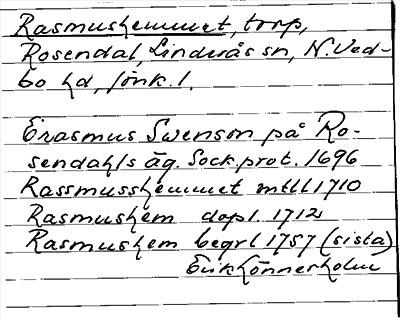 Rasmushemmet, torp,
Rosendal, Linderås sn, N. Ved-
bo hd, Jönk. l.
Erasmus Swenson på Ro-
sendahls äg. Sock.prot. 1696
Rassmusshemmet mtll 1710
Rasmushem dopl. 1712
Rasmushem begrl 1757 (sista)
Erik Lönnerholm